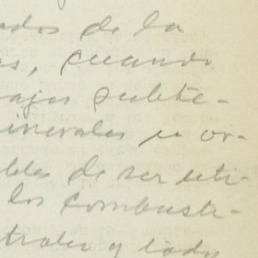 ados de la
as, cuando
bajos subte-
minerales u or-
bles de ser uti-
los combusti-
trales y todo